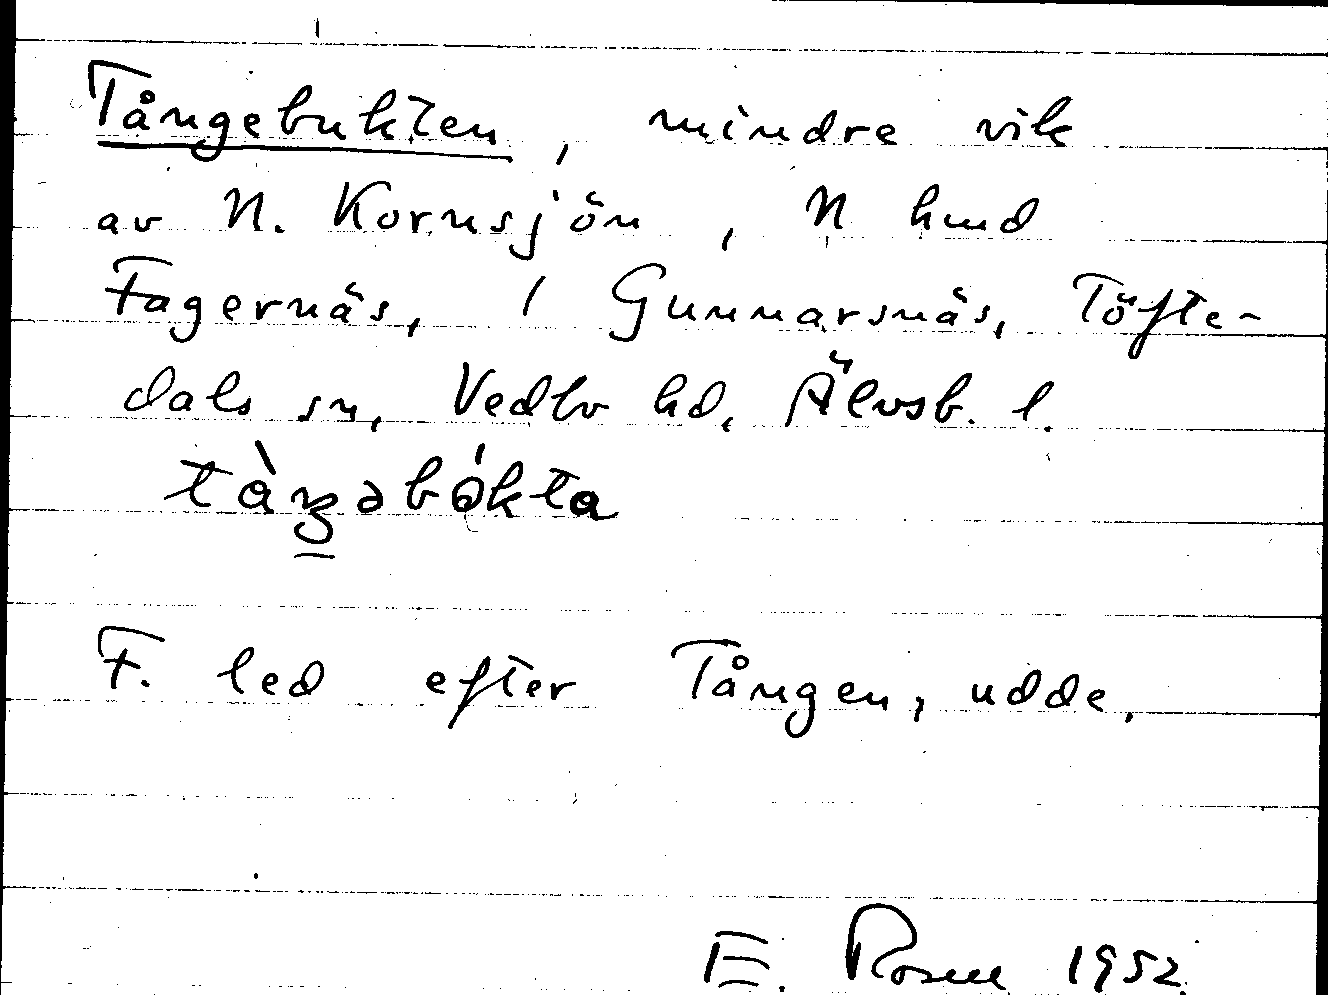 Tångebukten, mindre vik
av N. Kornsjön, N hmd
Fagernäs, i Gunnarsnäs, Töfte-
dals sn, Vedbo hd, Älvsb. l.
tàŋəbókta
F. led efter Tången, udde.
E. Rosell 1952.